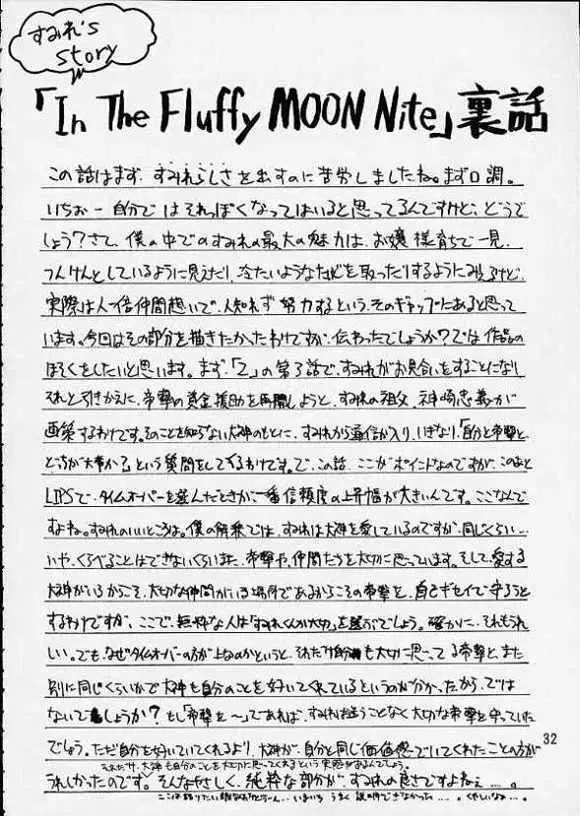 すみれ's
story
「In The Fluffy MOON Nite」裏話
この話はまず、すみれらしさを出すのに苦労しましたね。まず口調。
いちおー自分ではそれっぽくなってはいると思ってるんですけど、どうで
しょう?さて、僕の中でのすみれの最大の魅力は、お嬢様育ちで一見、
つんけんとしているように見えたり、冷たいような態度を取ったりするようにみえるけど、
実際は人一倍仲間想いで、人知れず努力するという、そのギャップにあると思って
います。今回はその部分を描きたかったわけですが、伝わったでしょうか?では作品の
ほそくをしたいと思います。まず「2」の第3話で、すみれがお見合いをすることになり
それと引きかえに、帝撃の資金援助を再開しようと、すみれの祖父、神崎忠義が
画策するわけです。そのことを知らない大神のもとに、すみれから通信が入り、いきなり、「自分と帝撃と
どっちが大事か?」という質問をしてくるわけです。で、この話、ここがポイントなのですが、このあと
LIPSで、タイムオーバーを選んだときが、一番信頼度の上昇幅が大きいんです。ここなんで
すよね。すみれのいいところは。僕の解釈では、すみれは大神を愛しているのですが、同じくらい…
いや、くらべることはできないくらいに、帝撃や、仲間たちを大切に思っています。そして、愛する
大神がいるからこそ、大切な仲間がいる場所であるからこその帝撃を、自己ギセイで守ろうと
するわけですが、ここで、無粋な人は「すみれくんが大切」を選ぶでしょう。確かに、それもうれ
しい。でも、なぜタイムオーバーの方が上なのかというと、それだけ自分も大切に思ってる帝撃と、また
別に同じくらいかで大神も自分のことを好いてくれているというのが分かったから、では
ないでしょうか?もし「帝撃を〜」であれば、すみれは迷うことなく大切な帝撃を守っていた
でしょう。ただ自分を好いていてくれるより、大神が、自分と同じ価値感でいてくれたことの方が
それだけ、大神も自分のことを大切に思ってくれるという実感があるんでしょう。
うれしかったのです。そんなやさしく、純粋な部分が、すみれの良さですよねぇ…。
32